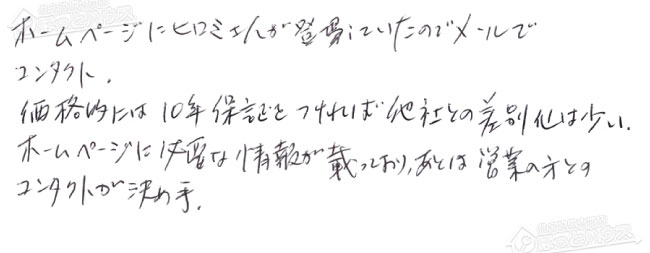 ホームページにヒロミさんが登場していたのでメールで
コンタクト.
価格的には10年保証をつければ他社との差別化は少い.
ホームページに必要な情報が載っており,あとは営業の方との
コンタクトが決め手.